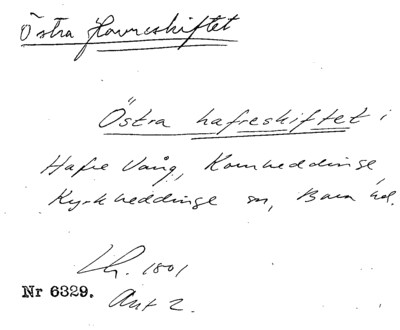 Östra Havreskiftet
Östra hafreskiftet i
Hafre Vång, Kornheddinge,
Kyrkheddinge sn, Bara hd.
Lh. 1801
Nr 6329. Akt 2.